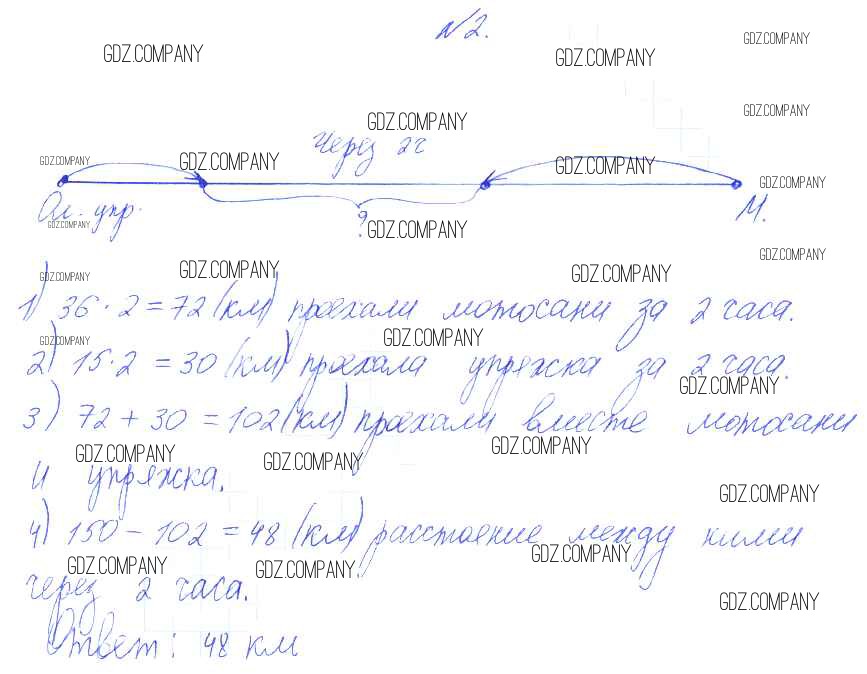 №2.
GDZ.COMPANY GDZ.COMPANY GDZ.COMPANY
GDZ.COMPANY GDZ.COMPANY
Через 2ч
GDZ.COMPANY GDZ.COMPANY GDZ.COMPANY GDZ.COMPANY
Ол. упр. ? М.
GDZ.COMPANY GDZ.COMPANY
GDZ.COMPANY GDZ.COMPANY GDZ.COMPANY GDZ.COMPANY
1) 36 · 2 = 72 (км) проехали мотосани за 2 часа.
GDZ.COMPANY GDZ.COMPANY
2) 15 · 2 = 30 (км) проехала упряжка за 2 часа.
GDZ.COMPANY
3) 72 + 30 = 102 (км) проехали вместе мотосани
GDZ.COMPANY GDZ.COMPANY GDZ.COMPANY
и упряжка.
GDZ.COMPANY
4) 150 - 102 = 48 (км) расстояние между ними
GDZ.COMPANY GDZ.COMPANY GDZ.COMPANY
через 2 часа.
GDZ.COMPANY
Ответ: 48 км